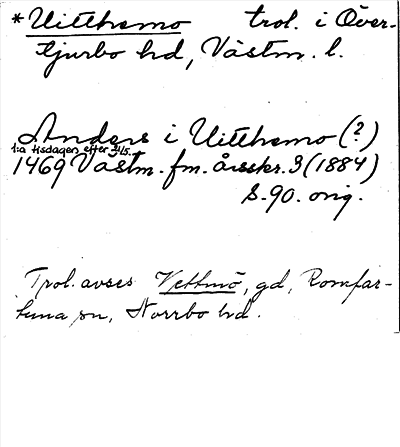 *Uitthemo trol. i Över-
tjurbo hd, Västm. l.
Anders i Uitthemo (?)
1:a tisdagen efter 31/5.
1469 Västm. fm. årsskr. 3 (1884)
S. 90. orig.
Trol. avses Vettmo, gd, Romfar-
tuna sn, Norrbo hd.